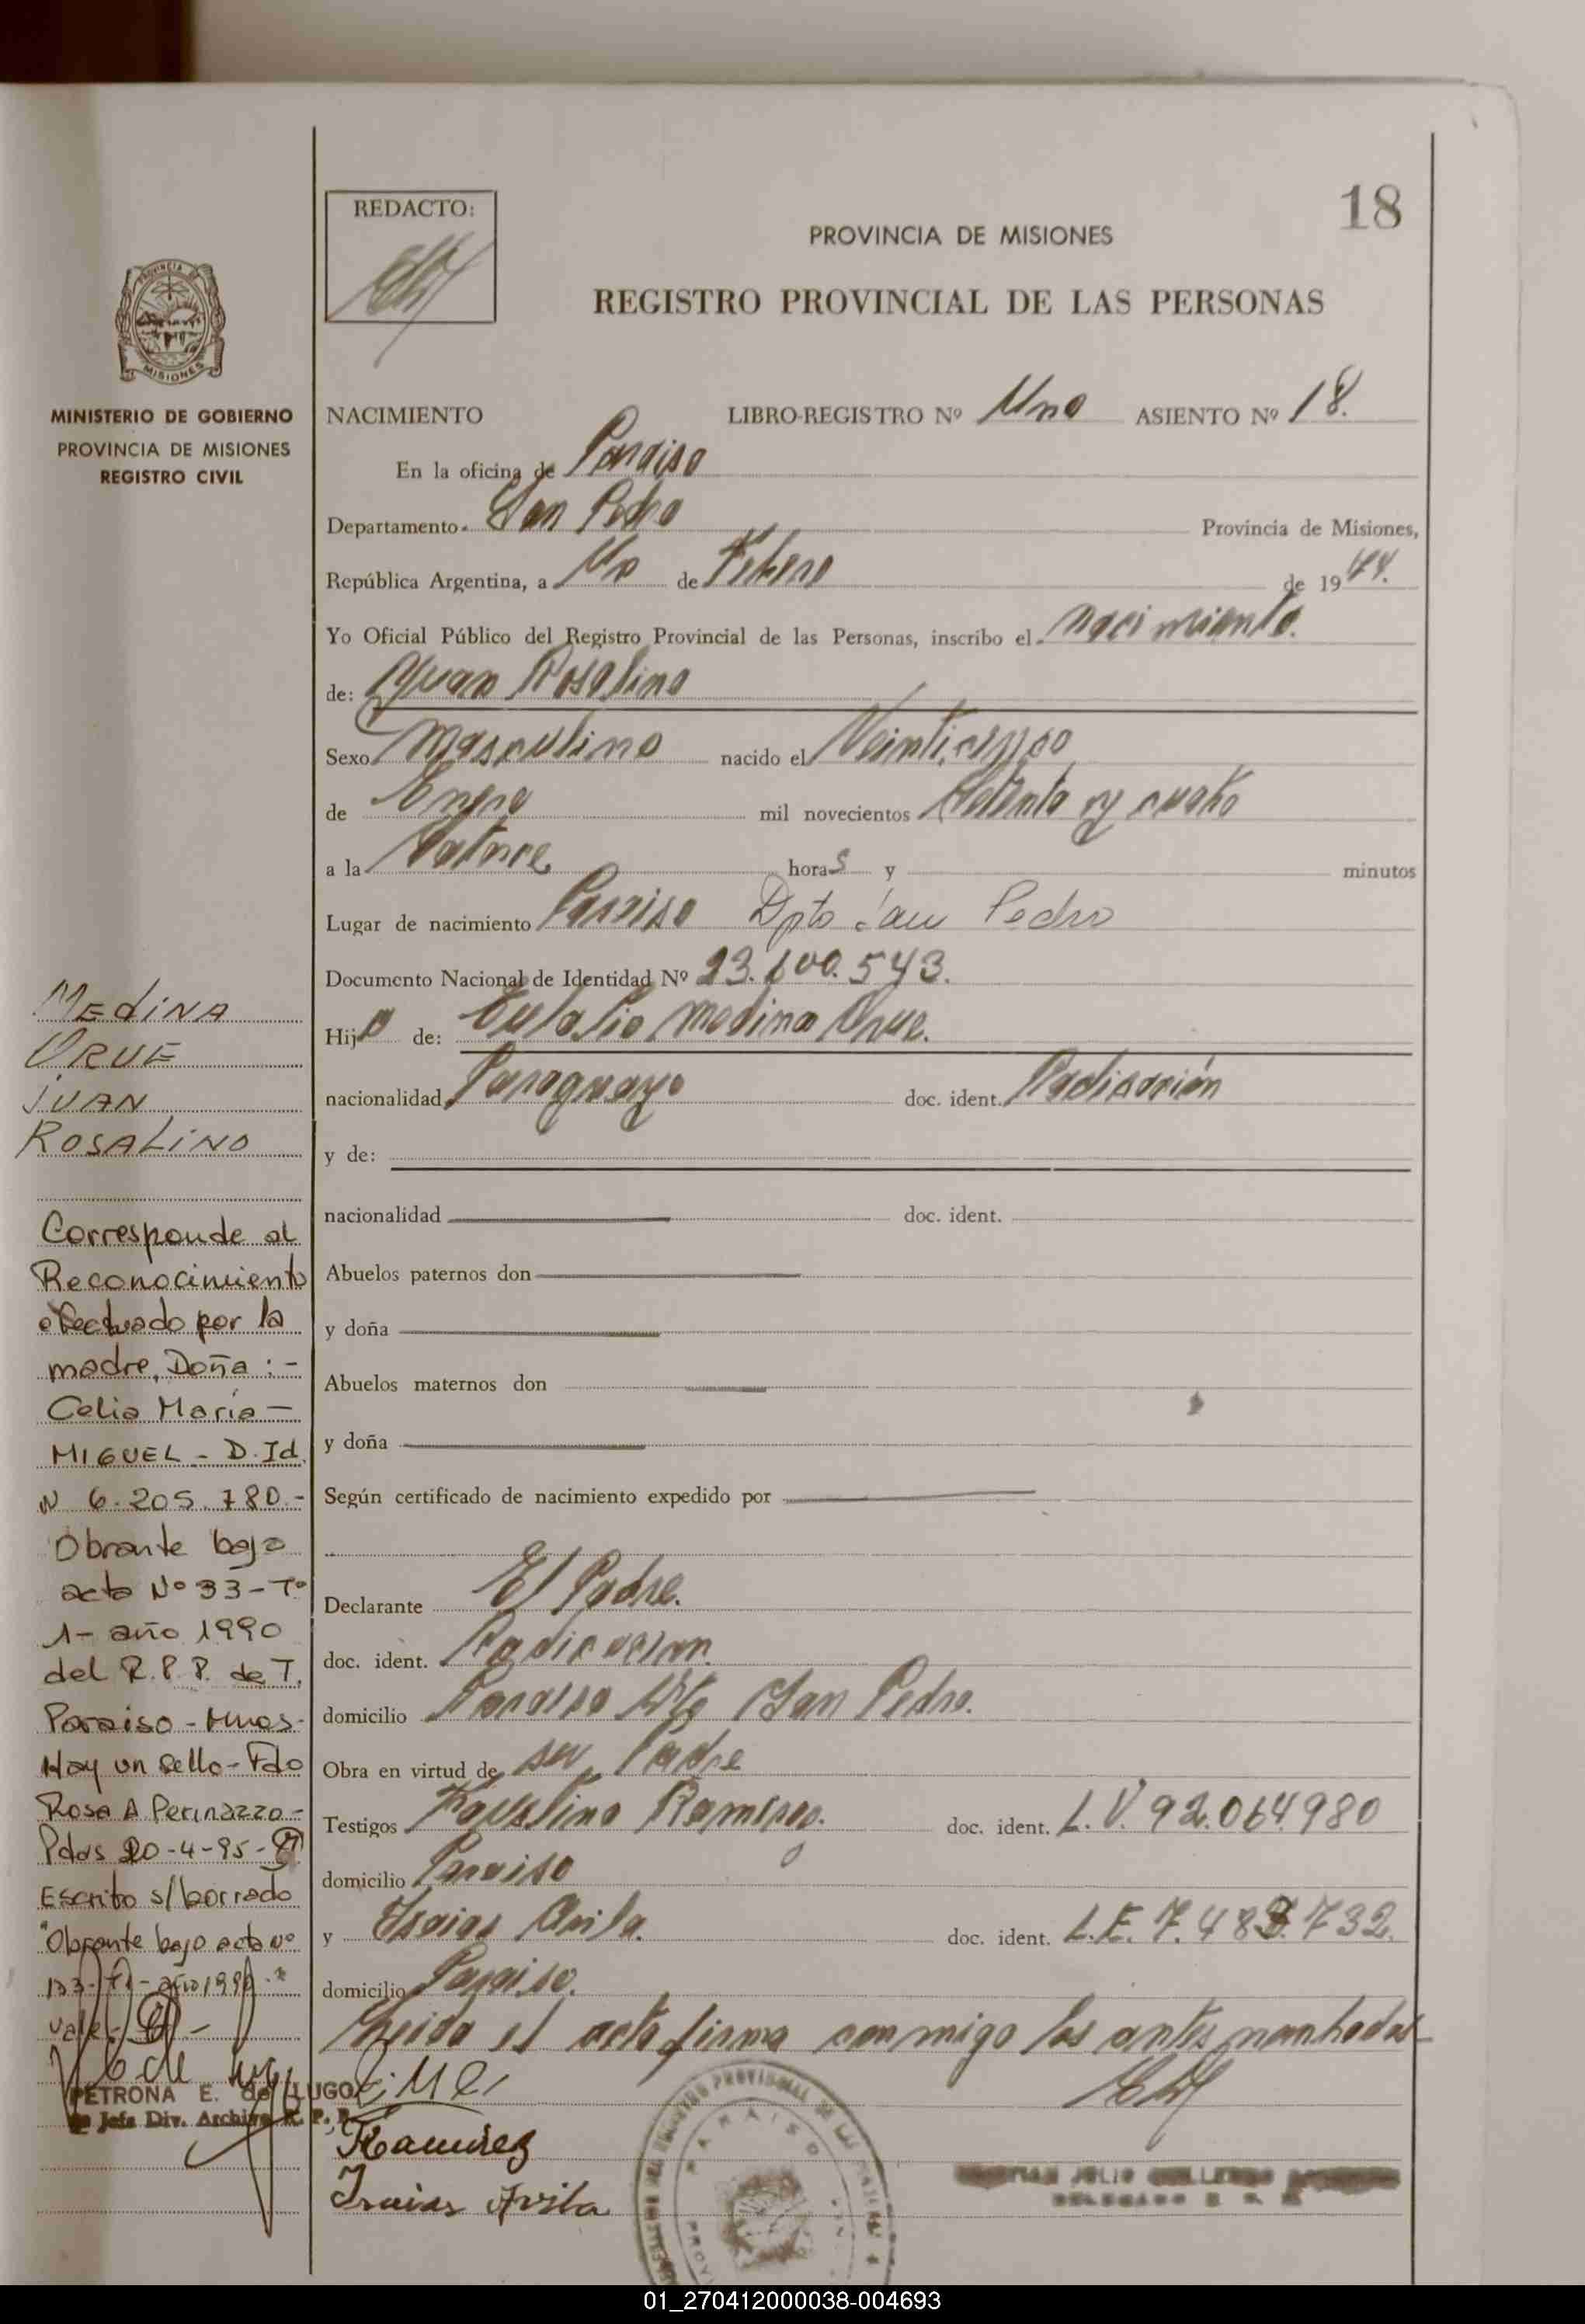 18
REDACTO:
PROVINCIA DE MISIONES
REGISTRO PROVINCIAL DE LAS PERSONAS
MINISTERIO DE GOBIERNO
PROVINCIA DE MISIONES
REGISTRO CIVIL
NACIMIENTO LIBRO-REGISTRO Nº Uno ASIENTO Nº 18.
En la oficina de Paraiso
Departamento San Pedro Provincia de Misiones,
República Argentina, a de Febrero de 19 74.
Yo Oficial Público del Registro Provincial de las Personas, inscribo el nacimiento.
de: Juan Rosalino
Sexo Masculino nacido el Veinticinco
de Enero mil novecientos Setenta y cuatro
a la Catorce horas y minutos
Lugar de nacimiento Paraiso Dpto San Pedro
Documento Nacional de Identidad Nº 23.600.543.
Hijo de: Eulalio Medina Orue.
nacionalidad Paraguayo doc. ident. Radicación
y de:
nacionalidad doc. ident.
Abuelos paternos don
y doña
Abuelos maternos don
y doña
Según certificado de nacimiento expedido por
Declarante El Padre.
doc. ident. Radicacion.
domicilio Paraiso Dto San Pedro.
Obra en virtud de ser Padre
Testigos Faustino Ramirez. doc. ident. L.V. 92.064.980
domicilio Paraiso
y Isaias Avila. doc. ident. L.E. 7.48 .732.
domicilio Paraiso.
Leido el acta firma conmigo los antes nombrados
Ramirez
Isaias Avila
MEDINA
ORUE
JUAN
ROSALINO
Corresponde al
Reconocimiento
efectuado por la
madre, Doña :-
Celia María -
MIGUEL - D. Id.
N 6.205.780.-
Obrante bajo
acta Nº 33 - Tº
1- año 1990
del R.P.P. de T.
Paraiso - Mnes-
Hay un sello - Fdo
Rosa A Perinazzo -
Pdas 20-4-95-
Escrito s/borrado
"Obrante bajo acta Nº
33-T1- año 1990."
Vale.-
PETRONA E. de LUGO
Jefa Div. Archivo R. P. P.
PARAISO
01_270412000038-004693